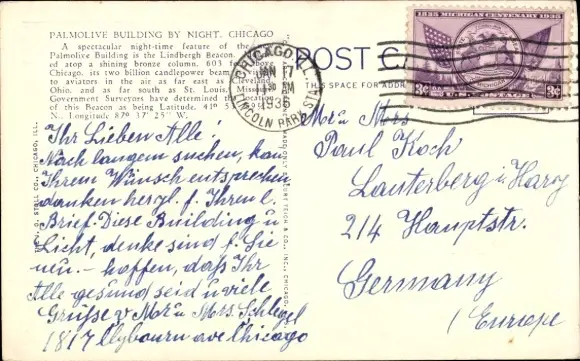 PALMOLIVE BUILDING BY NIGHT, CHICAGO
A spectacular night-time feature of the
Palmolive Building is the Lindbergh Beacon,
ed atop a shining bronze column. 603 f above
Chicago, its two billion candlepower beam
to aviators in the air as far east as Cleveland,
Ohio, and as far south as St. Louis, Missouri.
Government Surveyors have determined the location
of this Beacon as being Latitude, 41° 53'
N., Longitude 87° 37' 25" W.
POST CA
THIS SPACE FOR ADDR
CHICAGO, ILL.
JAN 17
AM
1936
LINCOLN PARK STA.
1835 MICHIGAN CENTENARY 1935
3¢ U.S. POSTAGE 3¢
Ihr Lieben Alle!
Nach langem suchen, kan
Ihrem Wunsch entsprechen
danken herzl. f. Ihren l.
Brief. Diese Building u
Licht, denke sind f. Sie
neu. – hoffen, dass Ihr
Alle gesund seid u viele
Grüsse v Mr u Mrs. Schlegel
1817 Clybourn ave Chicago
Mr u Mrs
Paul Koch
Lauterberg i. Harz
214 Hauptstr.
Germany
(Europe
CO., CHICAGO, ILL.
CO., INC., CHICAGO